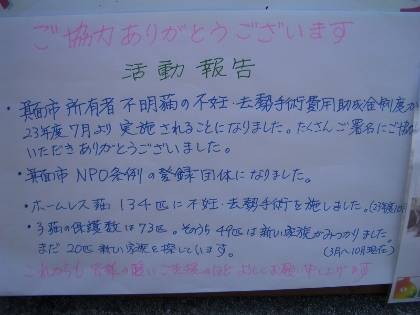 ご協力ありがとうございます
活動報告
・箕面市 所有者不明猫の不妊・去勢手術費用助成金制度が
23年度7月より実施されることになりました。たくさんご署名にご協
いただきありがとうございました。
・箕面市 NPO条例の登録団体になりました。
・ホームレス猫 134匹に不妊・去勢手術を施しました。(23年度
・子猫の保護数は73匹。そのうち49匹は新しい家族がみつかりました。
まだ20匹 新しい家族を探しています。 (3月〜10月現在)
これからも 皆様の暖いご支援のほど よろしくお願い申し上げます